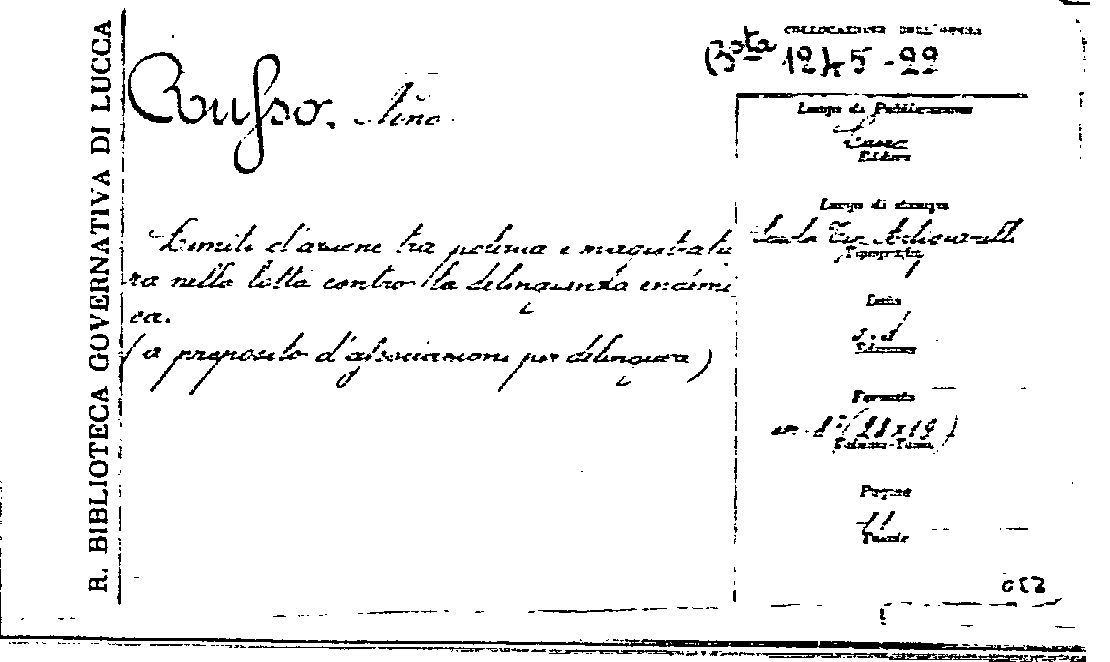 R. BIBLIOTECA GOVERNATIVA DI LUCCA
COLLOCAZIONE DELL'OPERA
Bsta 1245-22
Russo. Nino.
Limiti d'azione tra polizia e magistratu
ra nella lotta contro la delinquenza endemi
ca.
(a proposito d'associazione per delinquere)
Luogo di Pubblicazione
Editore
Luogo di stampa
Tipografia
Data
Edizione
Formato
in-8° (28x19)
Volume-Tomo
Pagine
11
Tavole